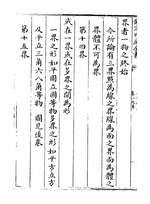 界者一物之終始
今所論有三界點為線之界線為面之界面為體之
界體不可為界
第十四界
或在一界或在多界之間為形
一界之形如平圓立圓等物多界之形如平方立方
及平立三角六八角等物圖見後卷
第十五界